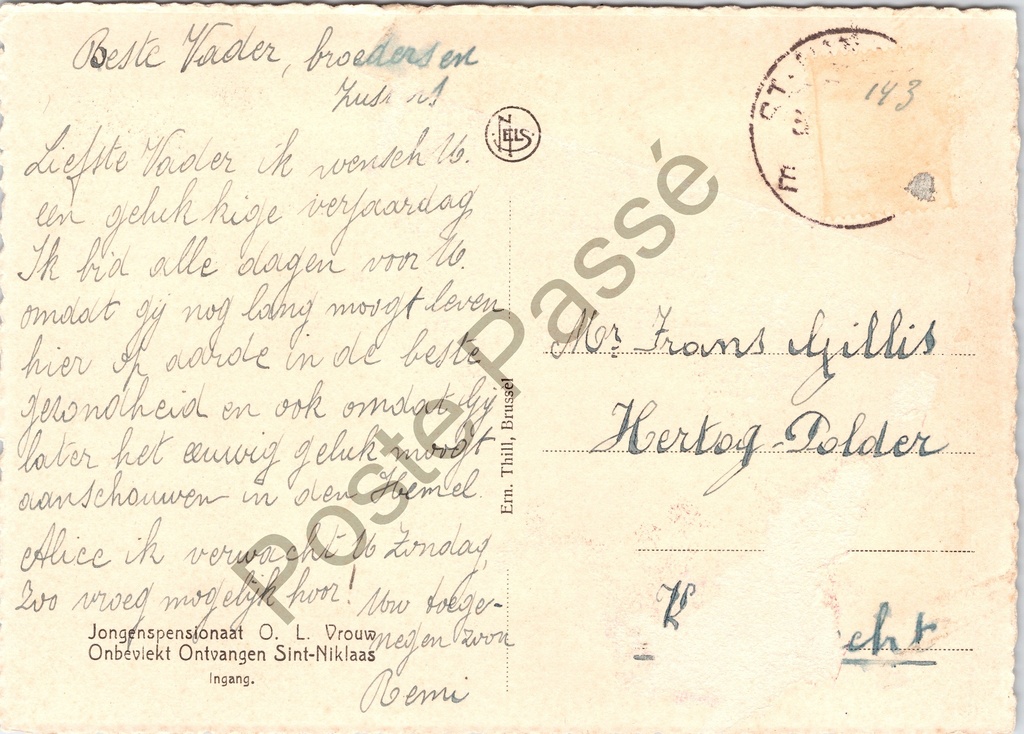 Beste Vader, broeders en
Zusters
Liefste Vader ik wensch U.
een geluk kige verjaardag
Ik bid alle dagen voor U.
omdat gij nog lang moogt leven
hier op aarde in de beste
gezondheid en ook omdat Gij
later het eeuwig geluk moogt
aanschouwen in den Hemel.
Alice ik verwacht U Zondag,
zoo vroeg mogelijk hoor!
Uw toege-
negen zoon
Remi
Jongenspensionaat O. L. Vrouw
Onbevlekt Ontvangen Sint-Niklaas
Ingang.
NELS
Ern. Thill, Brussel
143
Mr Frans Gillis
Hertog-Polder
Poste Passé